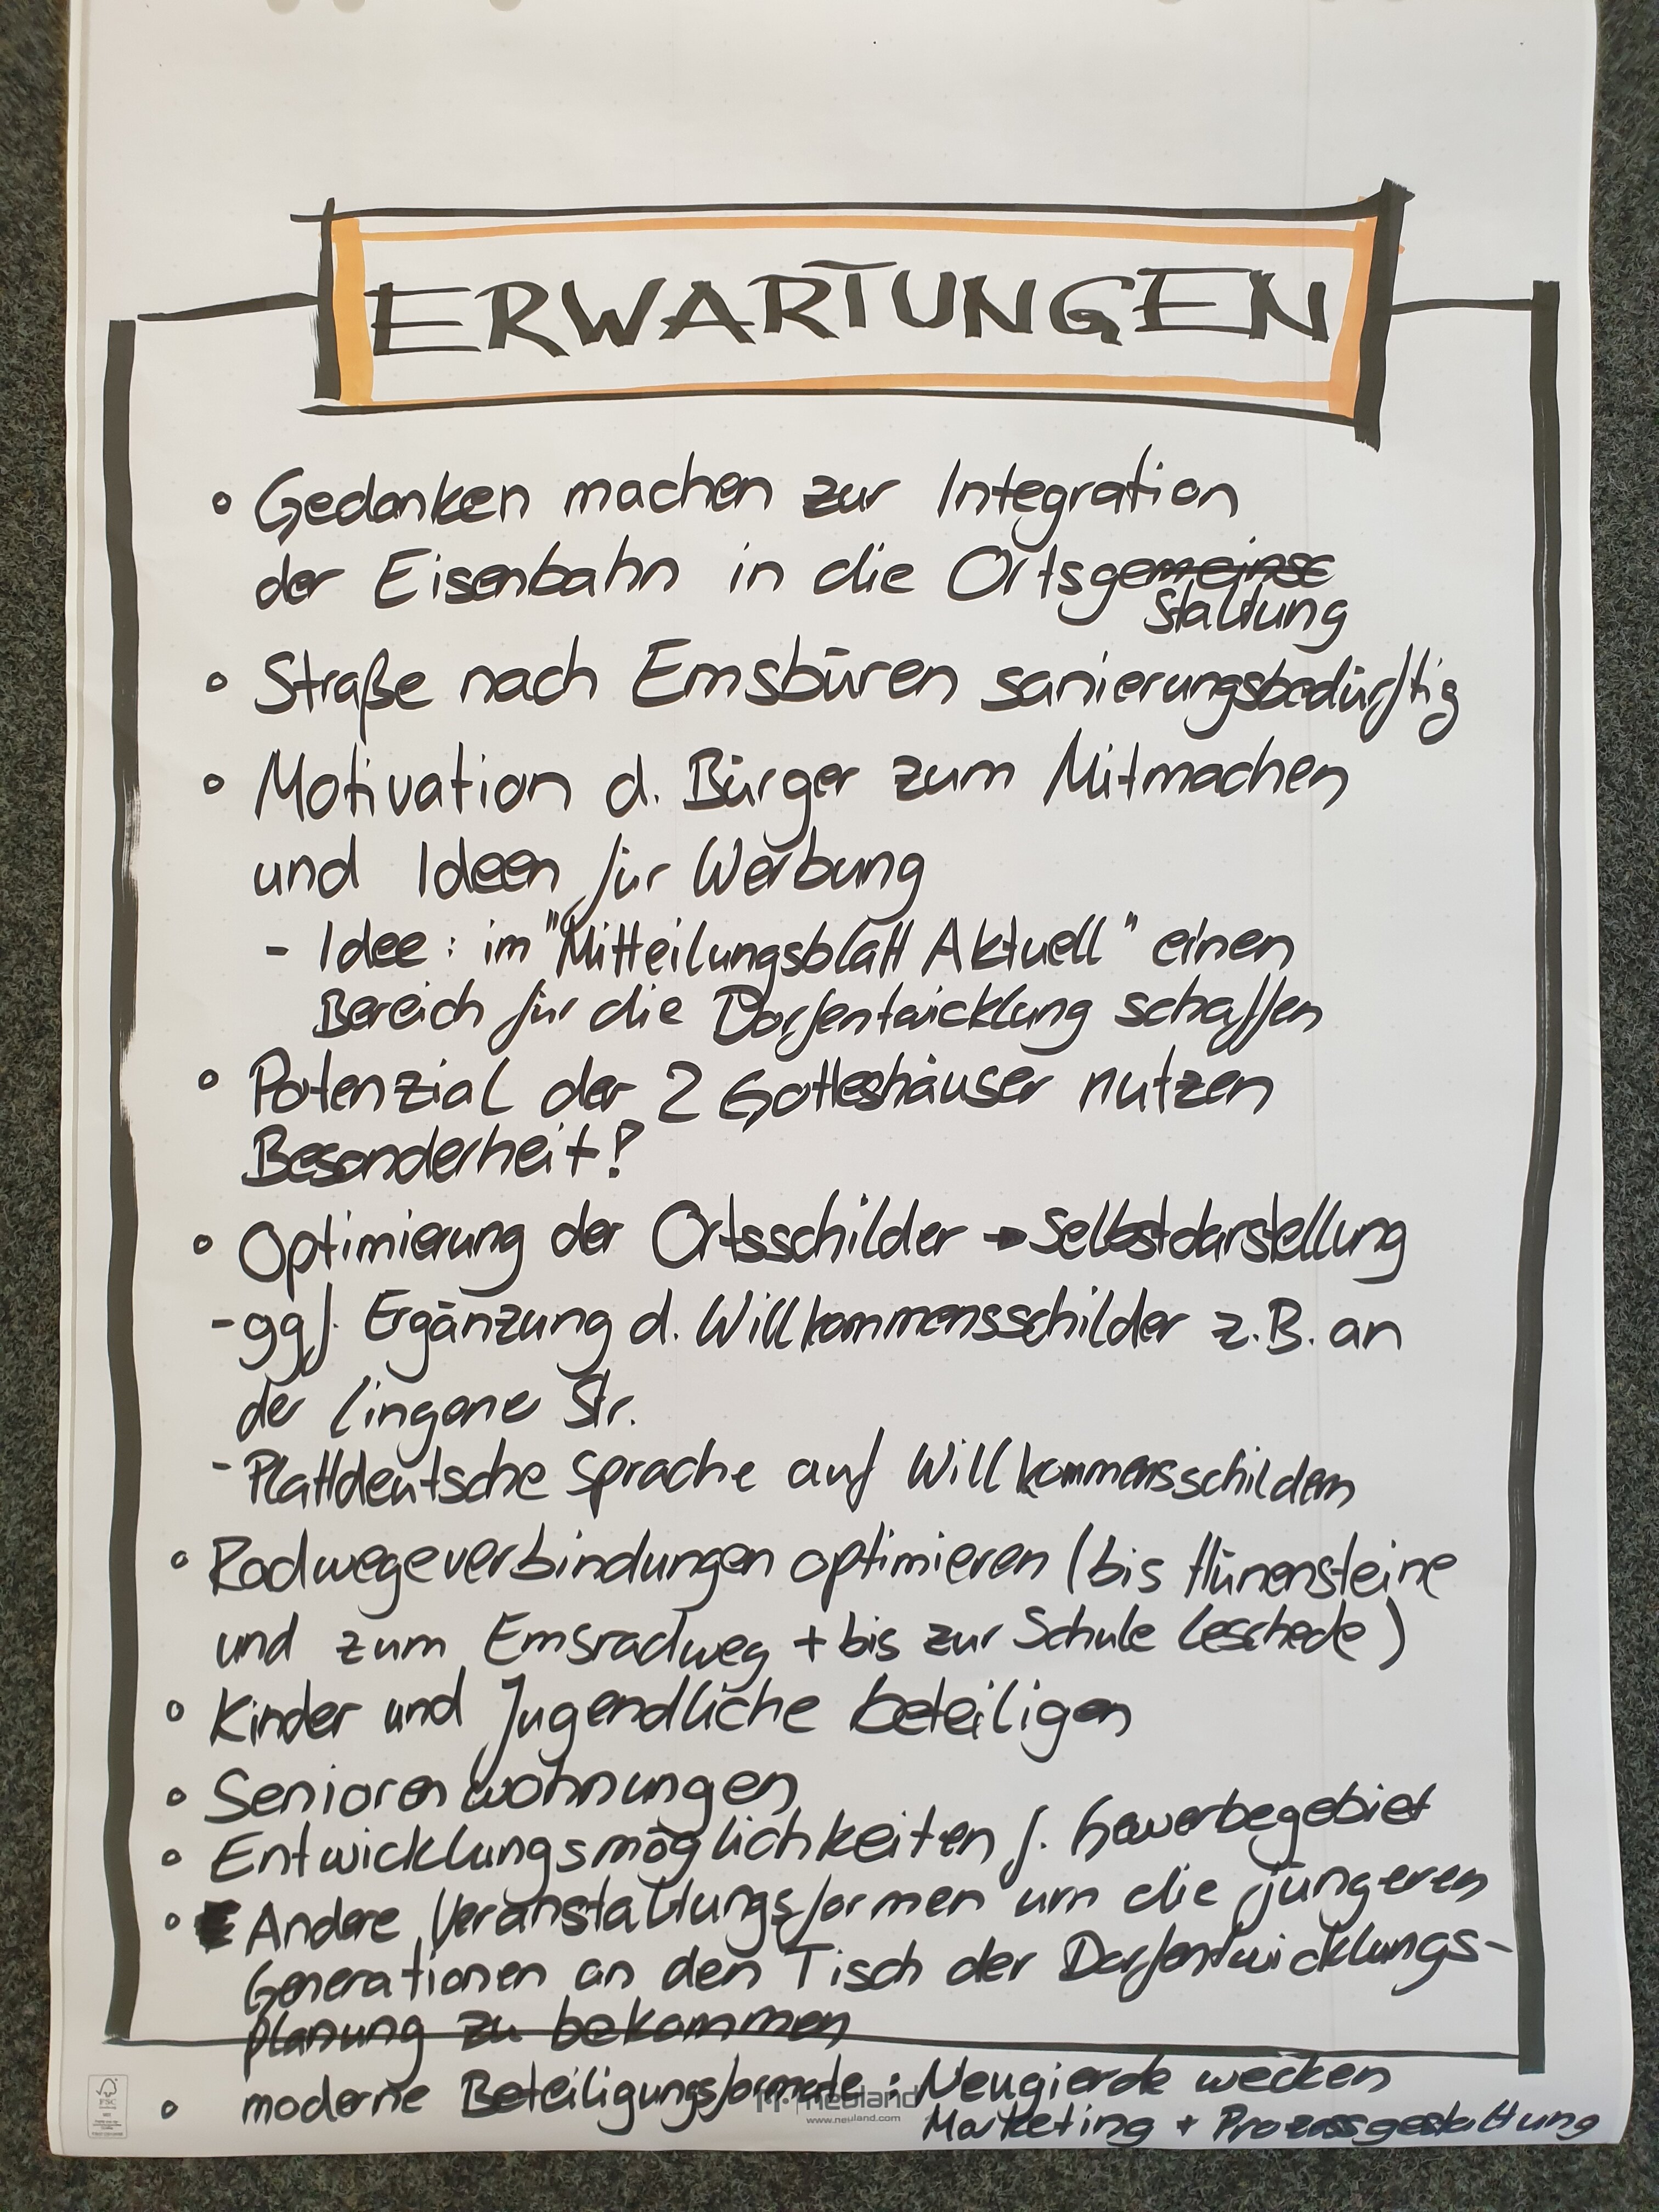 ERWARTUNGEN
° Gedanken machen zur Integration
der Eisenbahn in die Ortsgemeinsc
staltung
° Straße nach Emsbüren sanierungsbedürftig
° Motivation d. Bürger zum Mitmachen
und Ideen für Werbung
- Idee: im "Mitteilungsblatt Aktuell" einen
Bereich für die Dorfentwicklung schaffen
° Potenzial der 2 Gotteshäuser nutzen
Besonderheit!
° Optimierung der Ortsschilder → Selbstdarstellung
- ggf. Ergänzung d. Willkommensschilder z.B. an
der Lingener Str.
- Plattdeutsche Sprache auf Willkommensschildern
° Radwegeverbindungen optimieren (bis Hünensteine
und zum Emsradweg + bis zur Schule Leschede)
° Kinder und Jugendliche beteiligen
° Seniorenwohnungen
° Entwicklungsmöglichkeiten f. Gewerbegebiet
° Andere Veranstaltungsformen um die jüngeren
Generationen an den Tisch der Dorfentwicklungs-
planung zu bekommen
° moderne Beteiligungsformate: Neugierde wecken
Marketing + Prozessgestaltung
neuland
www.neuland.com
FSC